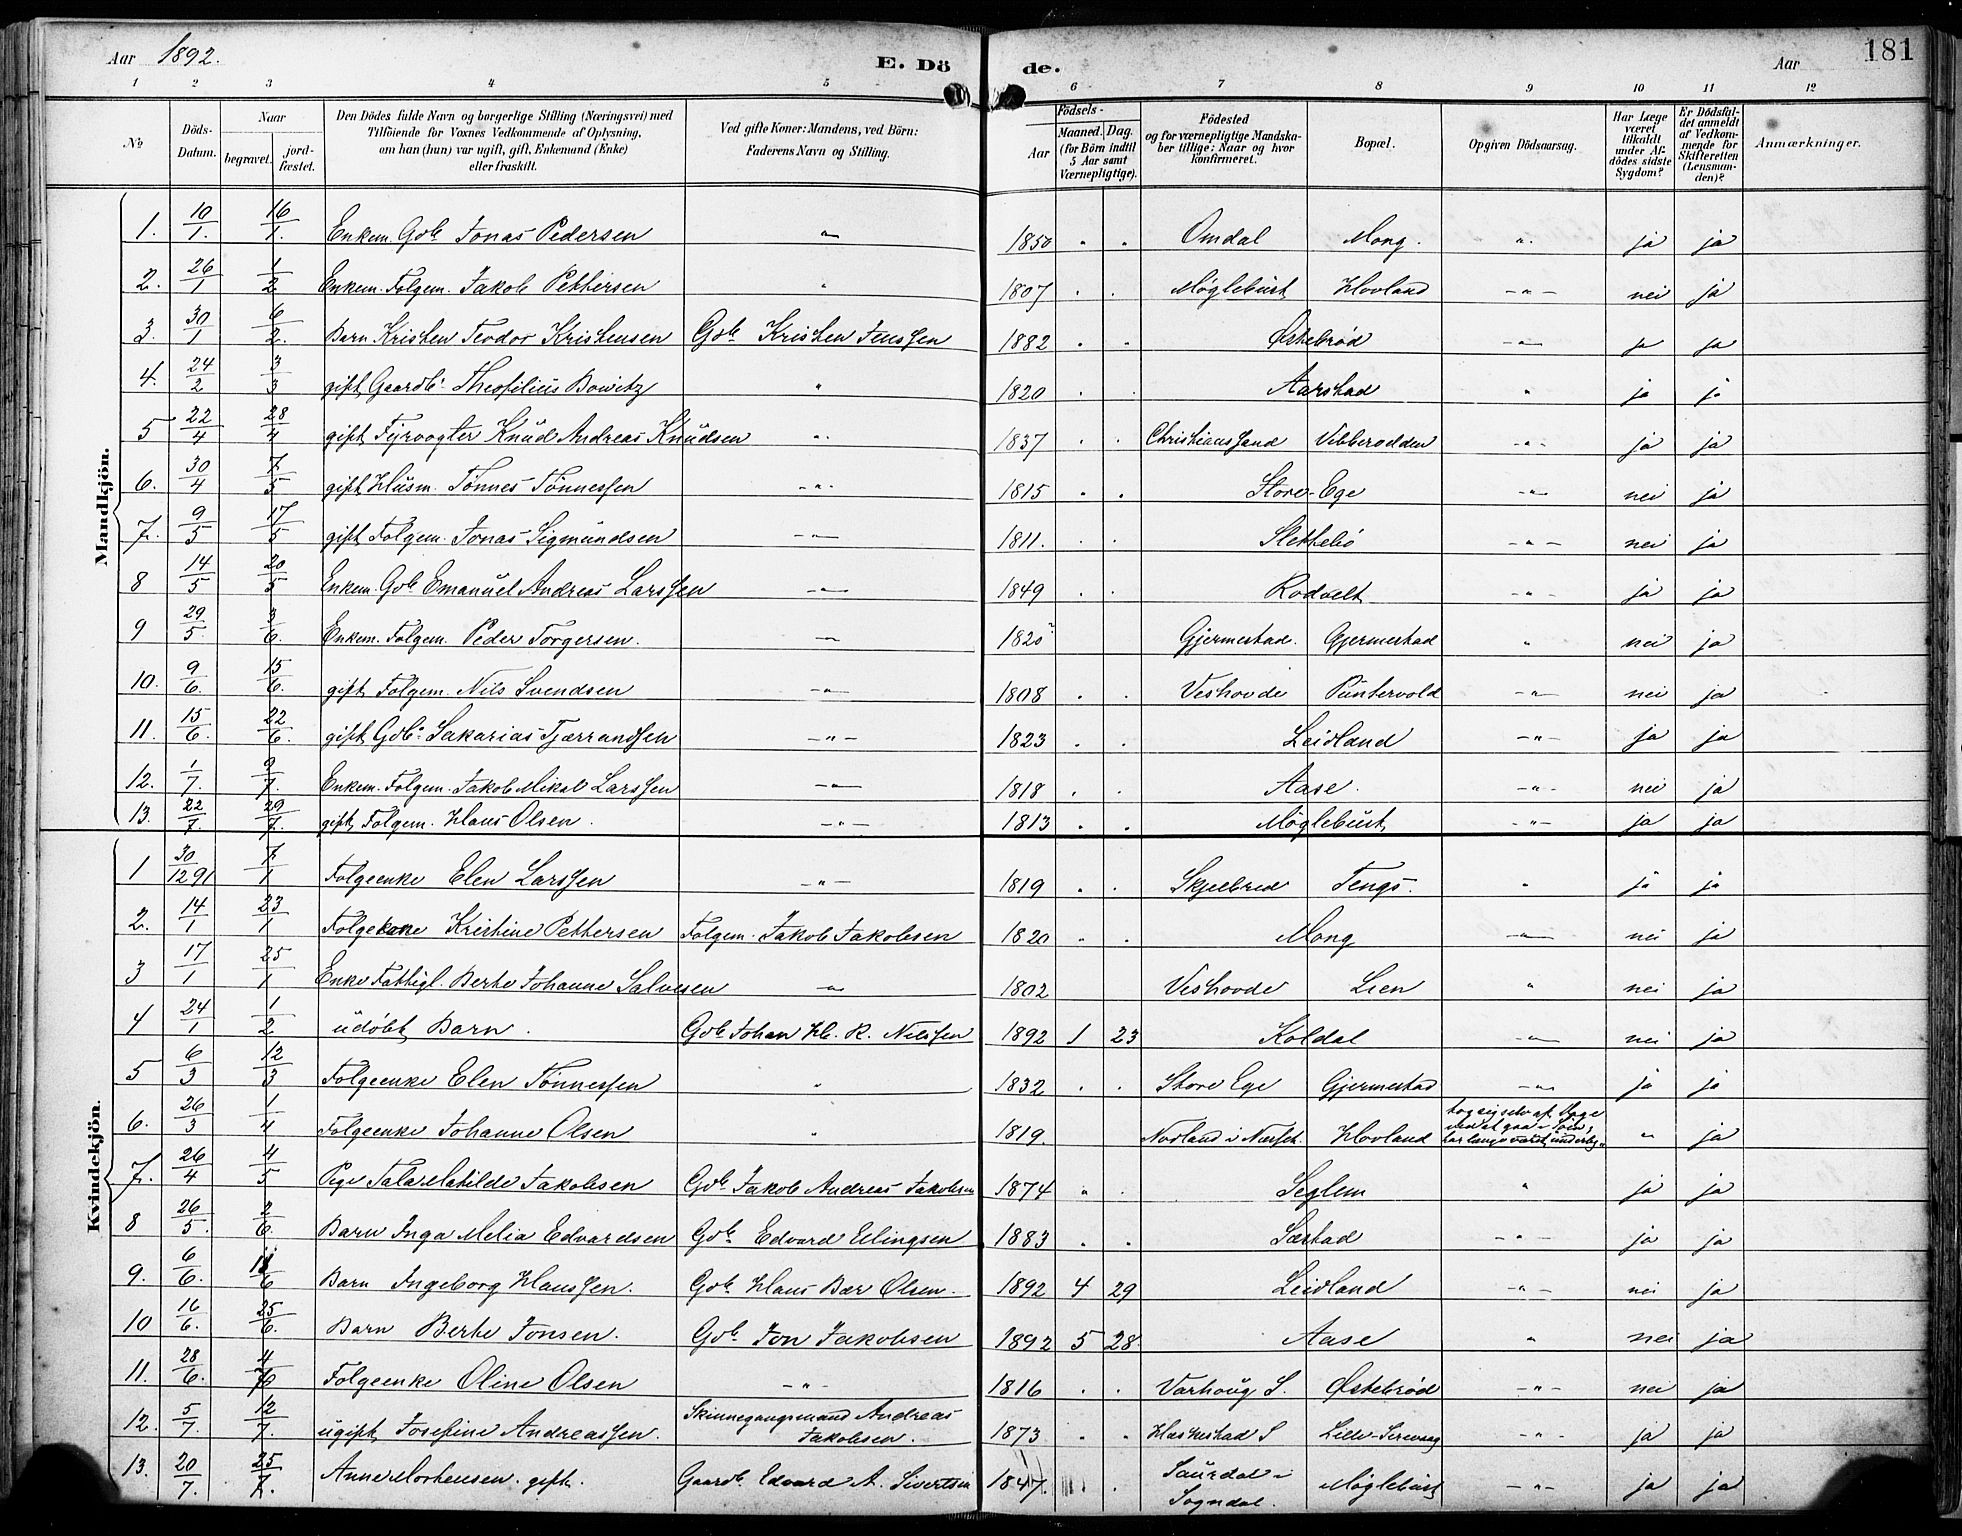 Aar 1892. E. Dö de. Aar 181
1 2 3 4 5 6 7 8 9 10 11 12
No Döds-Datum. Naar begravet. jordfæstet. Den Dödes fulde Navn og borgerlige Stilling (Næringsvei) med Tilföiende for Voxnes Vedkommende af Oplysning, om han (hun) var ugift, gift, Enkemand (Enke) eller fraskilt. Ved gifte Koner: Mandens, ved Börn: Faderens Navn og Stilling. Födsels- Aar Maaned. Dag. (for Börn indtil 5 Aar samt Værnepligtige). Födested og for værnepligtige Mandskaber tillige: Naar og hvor konfirmeret. Bopæl. Opgiven Dödsaarsag. Har Læge været tilkaldt under Afdödes sidste Sygdom? Er Dödsfaldet anmeldt af Vedkommende for Skifteretten (Lensmanden)? Anmærkninger.
Mandkjön.
1. 10/1. 16/1. Enkem. Gdb. Jonas Pedersen " 1850 " " Omdal Mong. " ja ja
2. 26/1 1/2 Enkem. Folgem. Jakob Pettersen " 1807 " " Møglebust Hovland -"- nei ja
3. 30/1 6/2. Barn Kristen Teodor Kristensen Gdb. Kristen Jenssen 1882 " " Østebrød -"- ja ja
4. 24/2 3/3 gift Gaardb. Theofilius Bowitz " 1820 " " Aarstad " ja ja
5 22/4 28/4 gift Fyrvogter Knud Andreas Knudsen " 1837 " " Christianssand Vibberodden -"- ja ja
6. 30/4 7/5 gift Husm. Tønnes Tønnessen -"- 1815 " " Store-Ege -"- nei ja
7. 9/5 17/5 gift Folgem. Jonas Sigmundsen -"- 1811. " " Slettebø -"- nei ja
8 14/5 20/5 Enkem. Gdb. Emanuel Andreas Larssen -"- 1849 " " Rodvelt -"- ja ja
9 29/5. 3/6. Enkem. Folgem. Peder Torgersen. -"- 1820 Gjermestad. Gjermestad " nei ja
10. 9/6. 15/6. gift Folgem. Nils Svendsen -"- 1808 " " Veshovde Puntervold -"- nei ja
11. 15/6. 22/6. gift Gdb. Sakarias Tjærrandsen -"- 1823 " " Leidland -"- ja ja
12. 1/7. 9/7. Enkem. Folgem. Jakob Mikal Larssen -"- 1818 " " Aase. -"- nei ja
13. 22/7. 29/7. gift Folgem. Hans Olsen. -"- 1813 " " Møglebust -"- ja ja
Kvindekjön.
1 30/12 91 7/1 Folgeenke Elen Larssen -"- 1819 " " Skjelbred Tengs. " ja ja
2. 14/1 23/1 Folgekone Kristine Pettersen Folgem. Jakob Jakobsen 1820 " " Mong -"- nei ja
3 17/1 25/1 Enke Fattigl. Berte Johanne Salvesen " 1802 Veshovde Lien " nei ja
4 24/1 1/2 udøbt Barn. Gdb Johan H. R. Nilssen 1892 1 23 Koldal -"- nei ja
5 6/3 12/3 Folgeenke Elen Tønnessen " 1832 " " Store Ege Gjermestad -"- ja ja
6. 26/3 1/4 Folgeenke Johanne Olsen " 1819. Hovland tog sig selv af Dage ved at gaa i Søen, har længe været " ja
7. 26/4 4/5 Pige Tala Matilde Jakobsen Gdb. Jakob Andreas Jakobsen 1874 " " Seglem " ja ja
8 26/5. 2/6. Barn Inga Melia Edvardsen Gdb. Edvard Elingsen 1883 " " Sæstad -"- ja ja
9. 6/6. 11/6 Barn Ingeborg Hanssen. Gdb. Hans Bær Olsen. 1892 4 29 Leidland -"- nei ja
10 16/6. 25/6. Barn Berte Jonsen. Gdb. Jon Jakobsen 1892 5 28. Aase " nei ja
11. 28/6. 4/7 Folgeenke Oline Olsen -"- 1816 " " Varhoug S. Østebrød -"- nei ja
12. 5/7. 12/7. ugift Josefine Andreassen. Skinnegangsmand Andreas Jakobsen. 1873 " " Haskestad S Lille-Sirevaag -"- ja ja
13. 20/7. 25/7. Anne Mortensen. gift. Gaardb. Edvard A. Sivertsen 1847. " Saurdal i Sogndal. Møglebust -"- ja ja